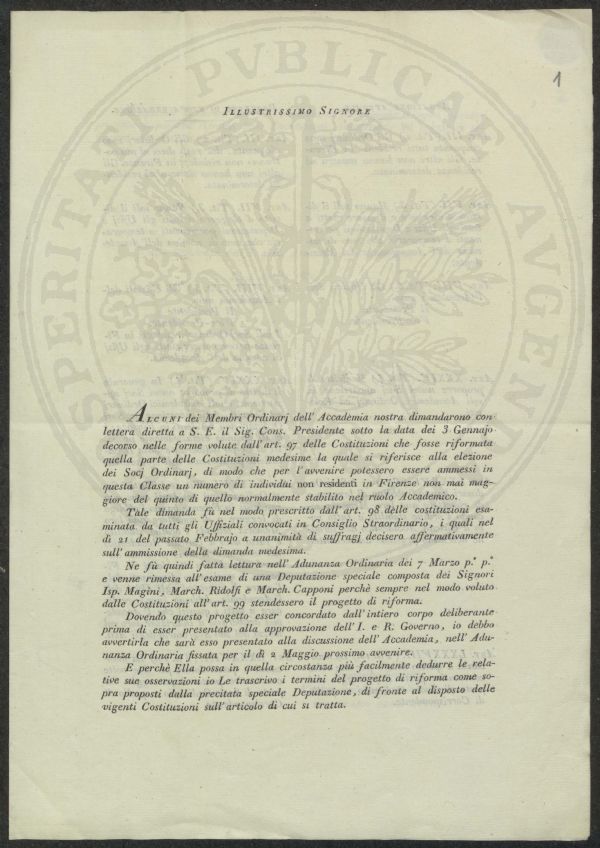 1
ILLUSTRISSIMO SIGNORE
ALCUNI dei Membri Ordinarj dell' Accademia nostra dimandarono con
lettera diretta a S. E. il Sig. Cons. Presidente sotto la data dei 3 Gennajo
decorso nelle forme volute dall' art. 97 delle Costituzioni che fosse riformata
quella parte delle Costituzioni medesime la quale si riferisce alla elezione
dei Socj Ordinarj, di modo che per l'avvenire potessero essere ammessi in
questa Classe un numero di individui non residenti in Firenze non mai mag-
giore del quinto di quello normalmente stabilito nel ruolo Accademico.
Tale dimanda fù nel modo prescritto dall' art. 98 delle costituzioni esa-
minata da tutti gli Uffiziali convocati in Consiglio Straordinario, i quali nel
dì 21 del passato Febbrajo a unanimità di suffragj decisero affermativamente
sull' ammissione della dimanda medesima.
Ne fù quindi fatta lettura nell' Adunanza Ordinaria dei 7 Marzo p.° p.°
e venne rimessa all' esame di una Deputazione speciale composta dei Signori
Isp. Magini, March. Ridolfi e March. Capponi perchè sempre nel modo voluto
dalle Costituzioni all' art. 99 stendessero il progetto di riforma.
Dovendo questo progetto esser concordato dall' intiero corpo deliberante
prima di esser presentato alla approvazione dell' I. e R. Governo, io debbo
avvertirla che sarà esso presentato alla discussione dell' Accademia, nell' Adu-
nanza Ordinaria fissata per il dì 2 Maggio prossimo avvenire.
E perchè Ella possa in quella circostanza più facilmente dedurre le rela-
tive sue osservazioni io Le trascrivo i termini del progetto di riforma come so-
pra proposti dalla precitata speciale Deputazione, di fronte al disposto delle
vigenti Costituzioni sull' articolo di cui si tratta.
SPERITATI PVBLICAE AVGEN